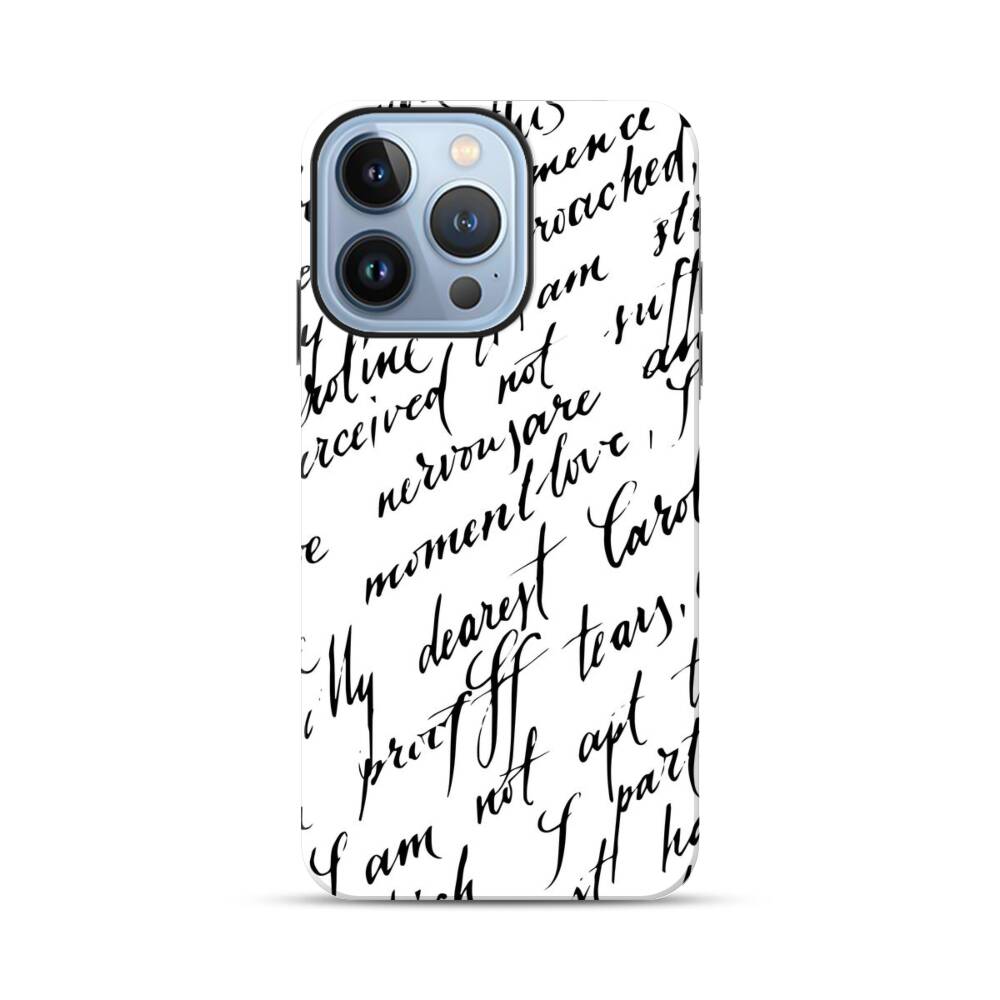 this
mence
roached,
am sti
roline
erceived not suff
nervous are an
e moment love, I
My dearest Carol
proof tears,
I am not apt t
I part
it ha